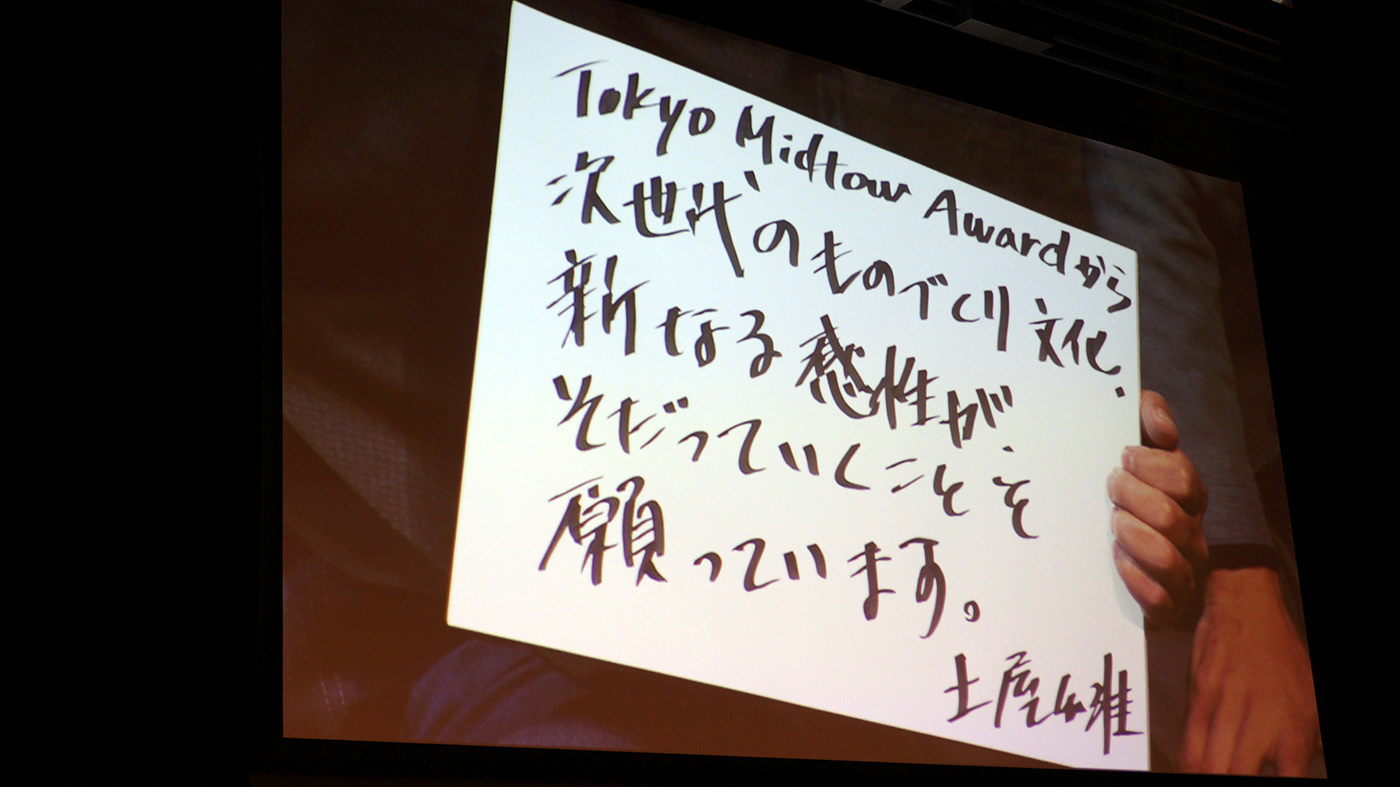 Tokyo Midtown Awardから
次世代のものづくり文化.
新なる感性が、
そだっていくことを
願っています。
土屋